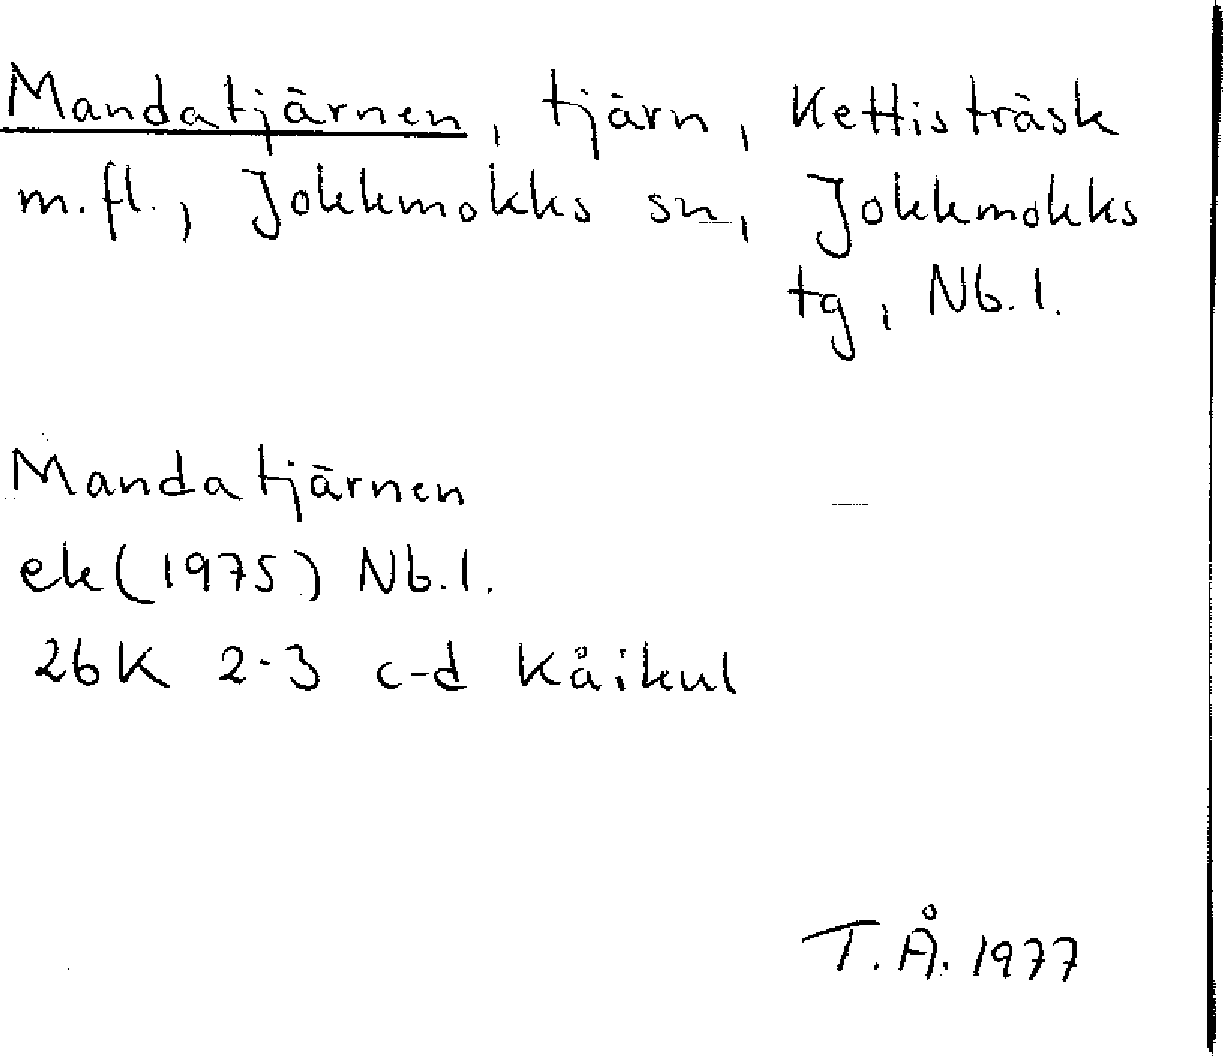 Mandatjärnen, tjärn, Kettisträsk
m.fl., Jokkmokks sn, Jokkmokks
tg, Nb.l.
Mandatjärnen
ek (1975) Nb.l.
26K 2-3 c-d Kåikul
T.Å. 1977